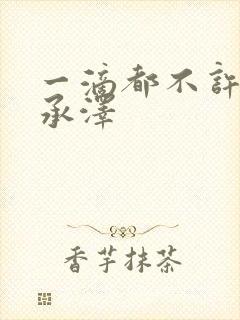 一滴都不许
承泽
香芋抹茶